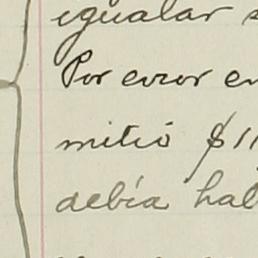 igualar
Por error en
mitió $11
debía hab